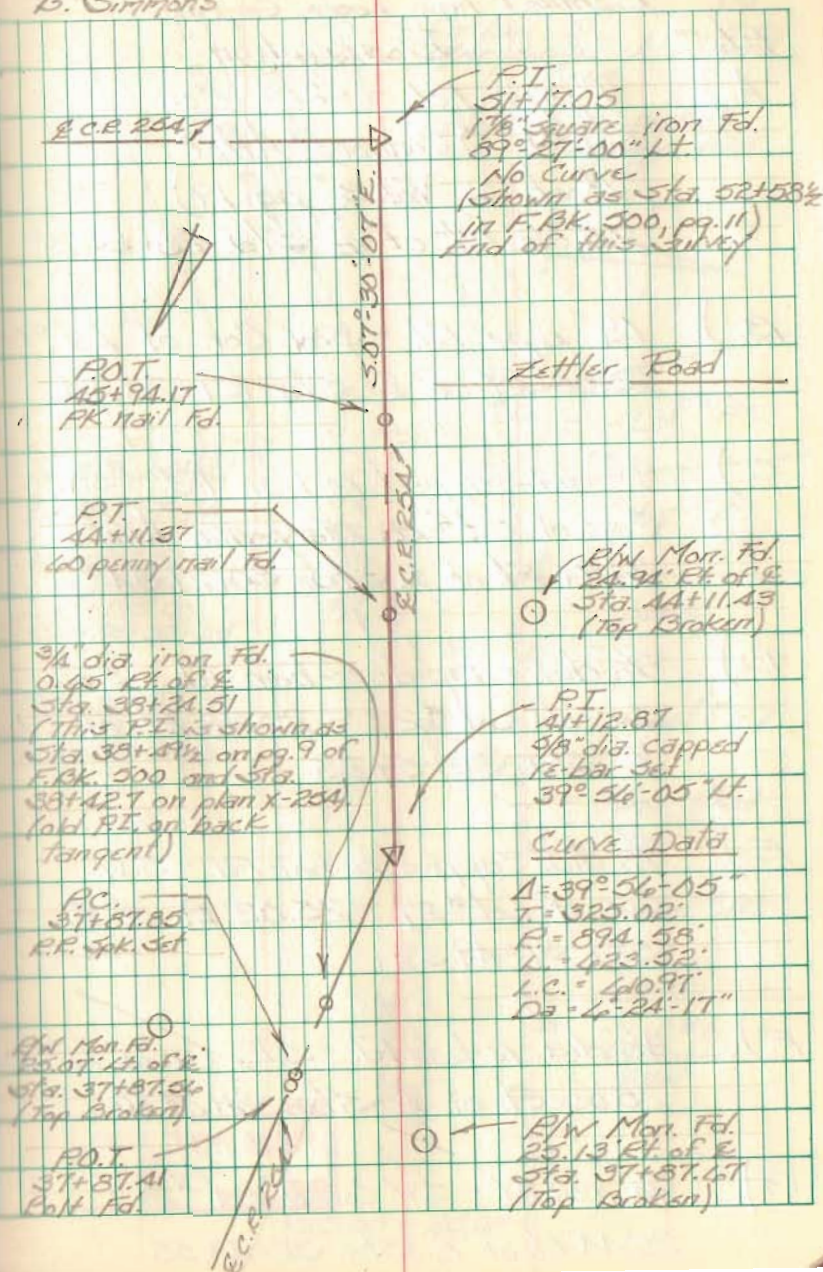 B. Simmons
P.I.
51+17.05
1⅞" square iron Fd.
89°-27'-00" Lt.
No Curve
(Shown as Sta. 52+58½
in F.BK. 500, pg. 11)
End of this Survey
℄ C.R. 254
S.07°-30'-07"E.
P.O.T.
45+94.17
PK nail Fd.
Zettler Road
℄ C.R. 254
P.T.
44+11.37
60 penny nail Fd.
R/W Mon. Fd.
24.94' Rt. of ℄
Sta. 44+11.43
(Top Broken)
¾" dia. iron Fd.
0.65' Rt. of ℄
Sta. 38+24.51
(This P.I. is shown as
Sta. 38+49½ on pg. 9 of
F.BK. 500 and Sta.
38+42.7 on plan X-254)
(old P.I. on back
tangent)
P.I.
41+12.87
5/8" dia. capped
re-bar set
39°-56'-05" Lt.
Curve Data
Δ = 39°-56'-05"
T. = 325.02'
R. = 894.58'
L. = 623.52'
L.C. = 610.97'
Da = 6°-24'-17"
P.C.
37+87.85
R.R. Spk. Set
R/W Mon. Fd.
25.07' Lt. of ℄
Sta. 37+87.56
(Top Broken)
P.O.T.
37+87.41
Bolt Fd.
R/W Mon. Fd.
25.13' Rt. of ℄
Sta. 37+87.67
(Top Broken)
℄ C.R. 254